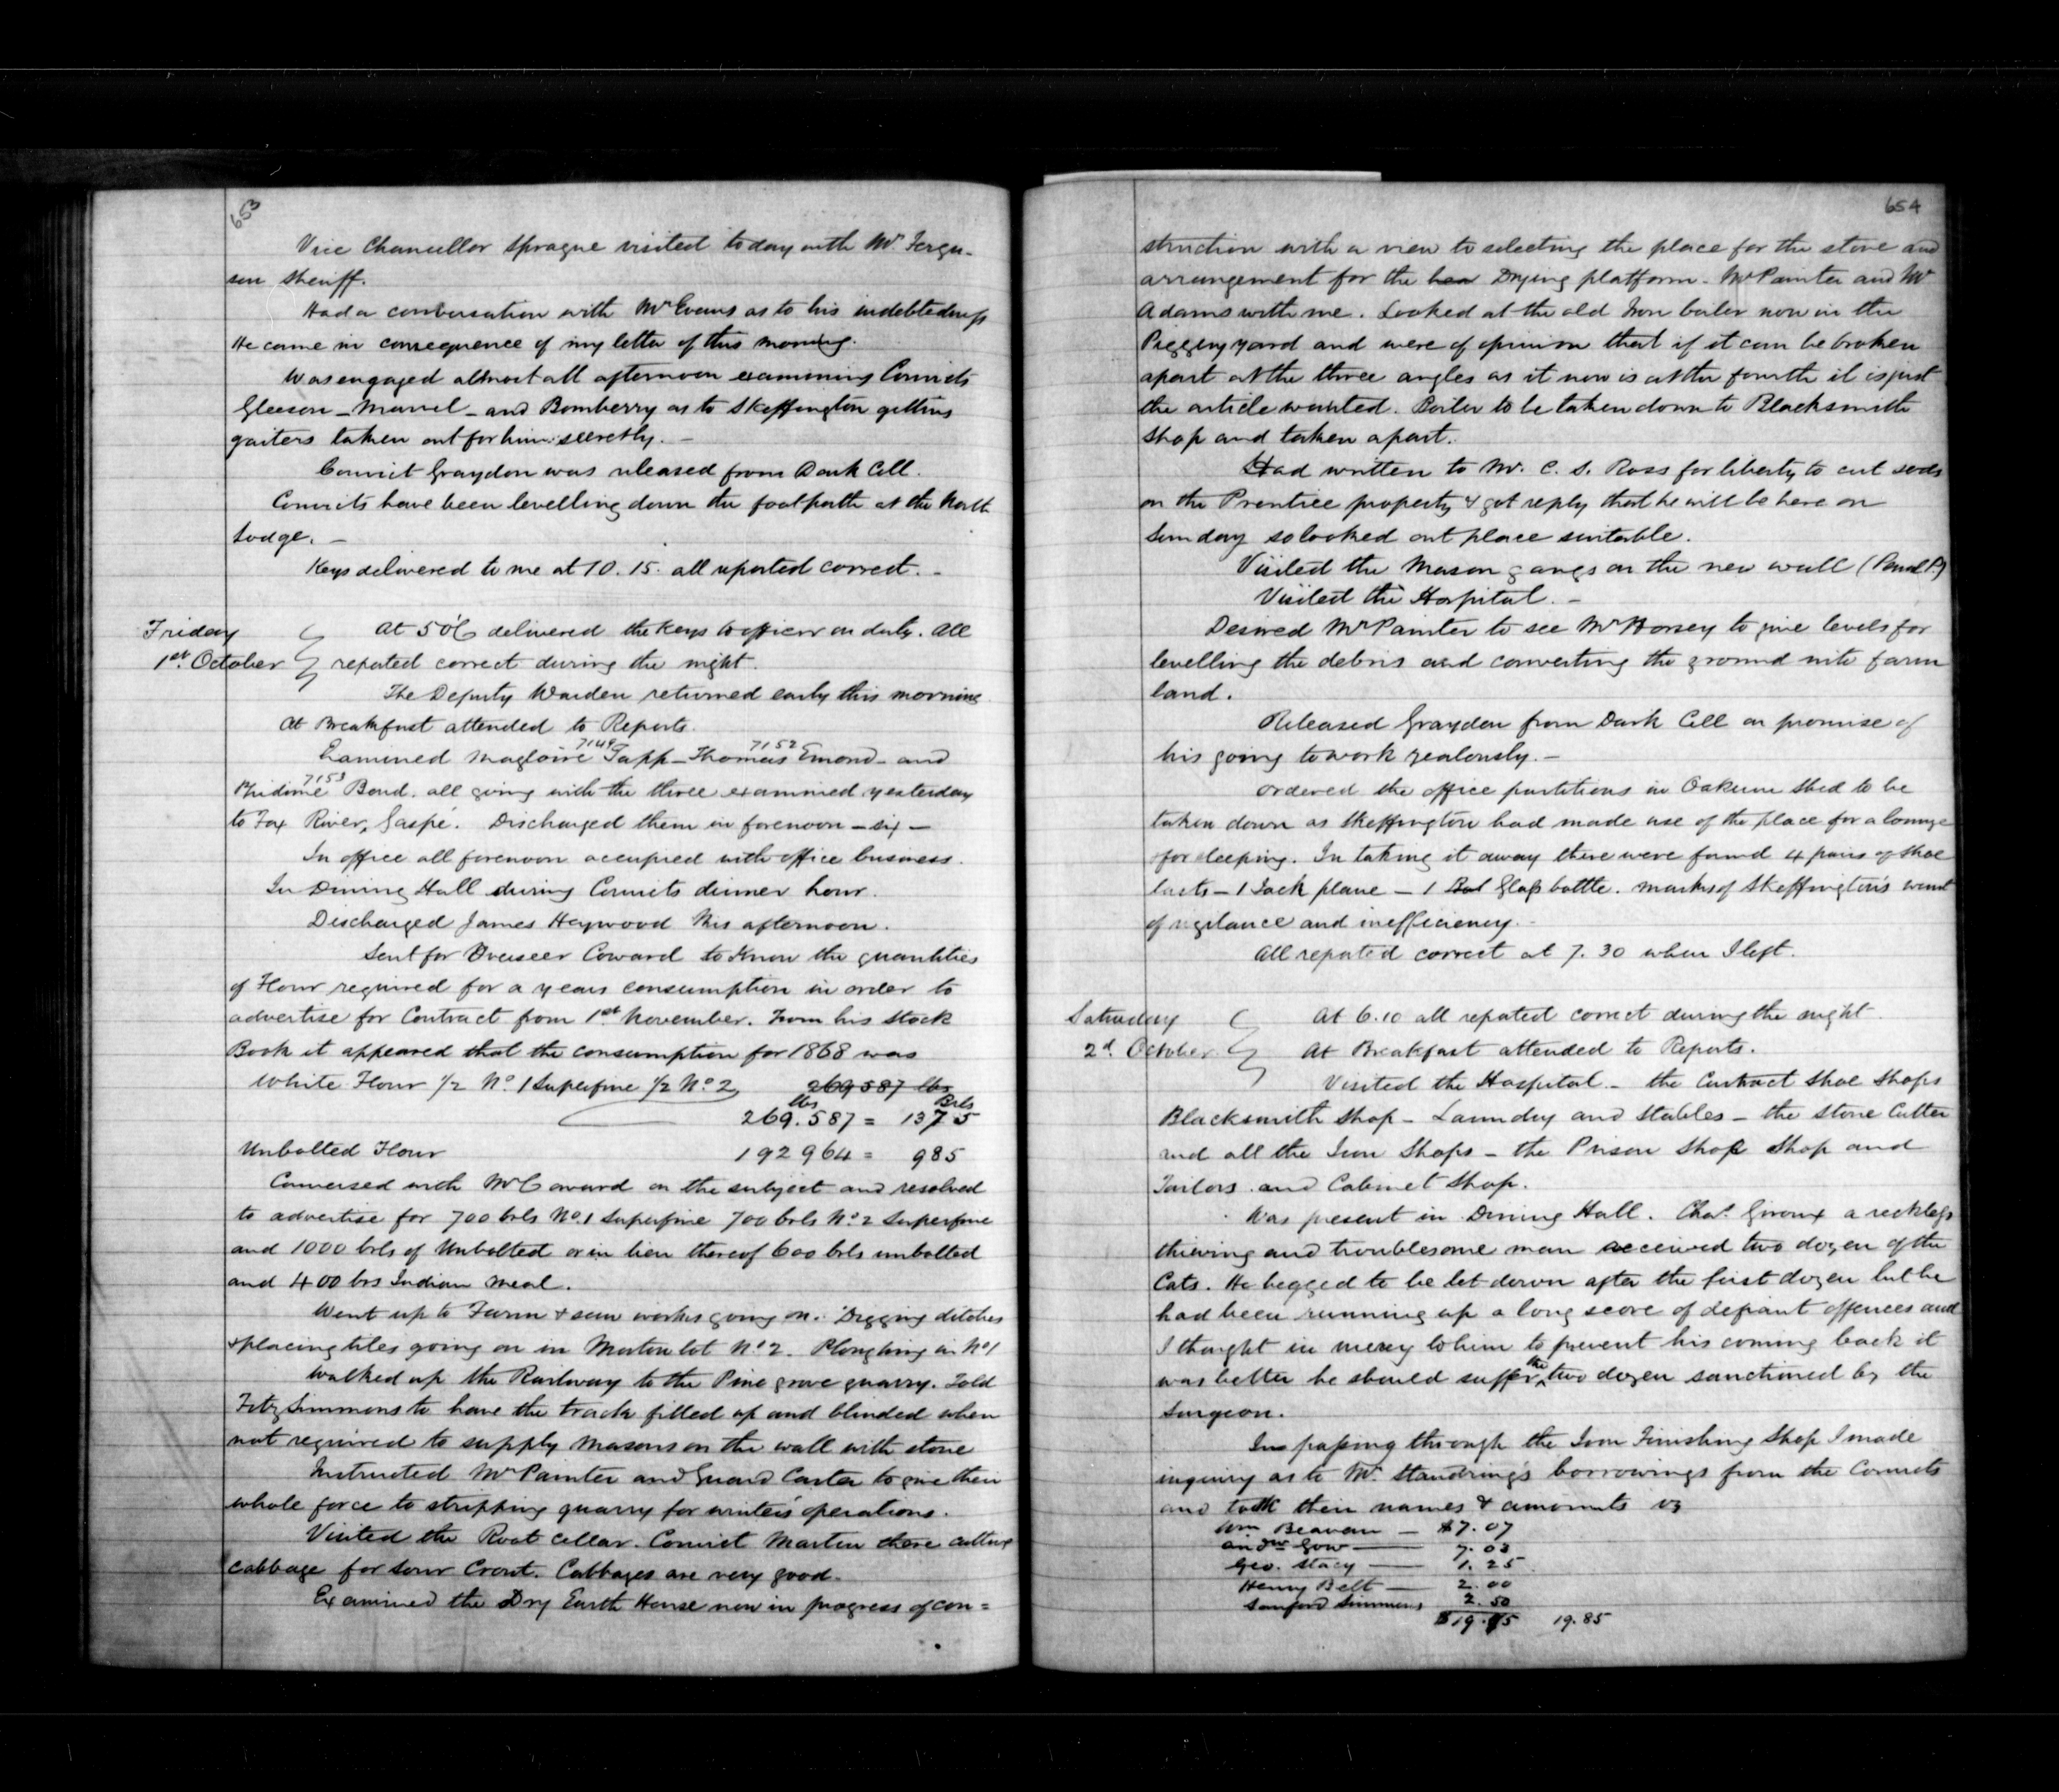 653
Vice Chancellor Sprague visited today with Mr Fergu-
son Sheriff.
Had a conversation with Mr Evans as to his indebtedness
He came in consequence of my letter of this morning.
Was engaged almost all afternoon examining Convicts
Gleeson - Marvel - and Bomberry as to Skeffington getting
gaiters taken out for him secretly. -
Convict Graydon was released from Dark Cell.
Convicts have been levelling down the footpath at the North
Lodge. -
Keys delivered to me at 10.15. all reported correct. -
Friday
1st October
At 5 delivered the keys to officer on duty. All
reported correct during the night.
The Deputy Warden returned early this morning
At Breakfast attended to Reports.
7149 7152
Examined Magloire Tapp - Thomas Emond - and
7153
Bond. all going with the three examined yesterday
to Fox River, Gaspé. Discharged them in forenoon - six -
In office all forenoon occupied with office business.
In Dining Hall during Convicts dinner hour.
Discharged James Heywood this afternoon.
Sent for Overseer Coward to know the quantities
of Flour required for a years consumption in order to
advertise for Contract from 1st November. From his Stock
Book it appeared that the consumption for 1868 was
White Flour 1/2 No. 1 Superfine 1/2 No. 2 269587 lbs
lbs Brls
269.587 = 1375
Unbolted Flour 192964 = 985
Conversed with Mr Coward on the subject and resolved
to advertise for 700 brls No. 1 Superfine 700 brls No. 2 Superfine
and 1000 brls of Unbolted or in lieu thereof 600 brls unbolted
and 400 brs Indian Meal.
Went up to Farm & saw works going on. Digging ditches
& placing tiles going on in Morton lot No 2. Ploughing in No 1
Walked up the Railway to the Pine grove quarry. Told
Fitz Simmons to have the track filled up and blinded when
not required to supply Masons on the wall with stone
Instructed Mr Painter and Guard Carter to give their
whole force to stripping quarry for winters operations.
Visited the Root Cellar. Convict Martin there cutting
cabbage for sour Crout. Cabbages are very good.
Examined the Dry Earth House now in progress of con=
654
struction with a view to selecting the place for the stove and
arrangement for the hea Drying platform - Mr Painter and Mr
Adams with me. Looked at the old Iron boiler now in the
Piggery yard and were of opinion that if it can be broken
apart at the three angles as it now is at the fourth it is just
the article wanted. Boiler to be taken down to Blacksmith
Shop and taken apart.
Had written to Mr. C. S. Ross for liberty to cut sods
on the Prentice property & got reply that he will be here on
Sunday so looked out place suitable.
Visited the Mason gangs on the new wall
Visited the Hospital. -
Desired Mr Painter to see Mr Horsey to give levels for
levelling the debris and converting the ground into farm
land.
Released Graydon from Dark Cell on promise of
his going to work zealously. -
Ordered the office partitions in Oakum Shed to be
taken down as Skeffington had made use of the place for a lounge
for sleeping. In taking it away there were found 4 pairs of shoe
lasts - 1 Jack plane - 1 Bot Glass bottle. marks of Skeffington's want
of vigilance and inefficiency. -
All reported correct at 7.30 when I left.
Saturday
2d October
At 6.10 all reported correct during the night.
At Breakfast attended to Reports.
Visited the Hospital - the Contract Shoe Shops
Blacksmith Shop - Laundry and Stables - the Stone Cutter
and all the Iron Shops - the Prison Shoe Shop and
Tailors and Cabinet Shop.
Was present in Dining Hall. Chas. Giroux a reckless
thieving and troublesome man received two dozen of the
Cats. He begged to be let down after the first dozen but he
had been running up a long score of defiant offences and
I thought in mercy to him to prevent his coming back it
was better he should suffer the two dozen sanctioned by the
Surgeon.
In passing through the Iron Finishing Shop I made
inquiry as to Mr. Standring's borrowings from the Convicts
and took their names & amounts vz
Wm Beavan - $7.07
Andw Gow - 7.03
Geo. Stacy - 1.25
Henry Belt - 2.00
Sanford Simmons 2.50
$19.85 19.85